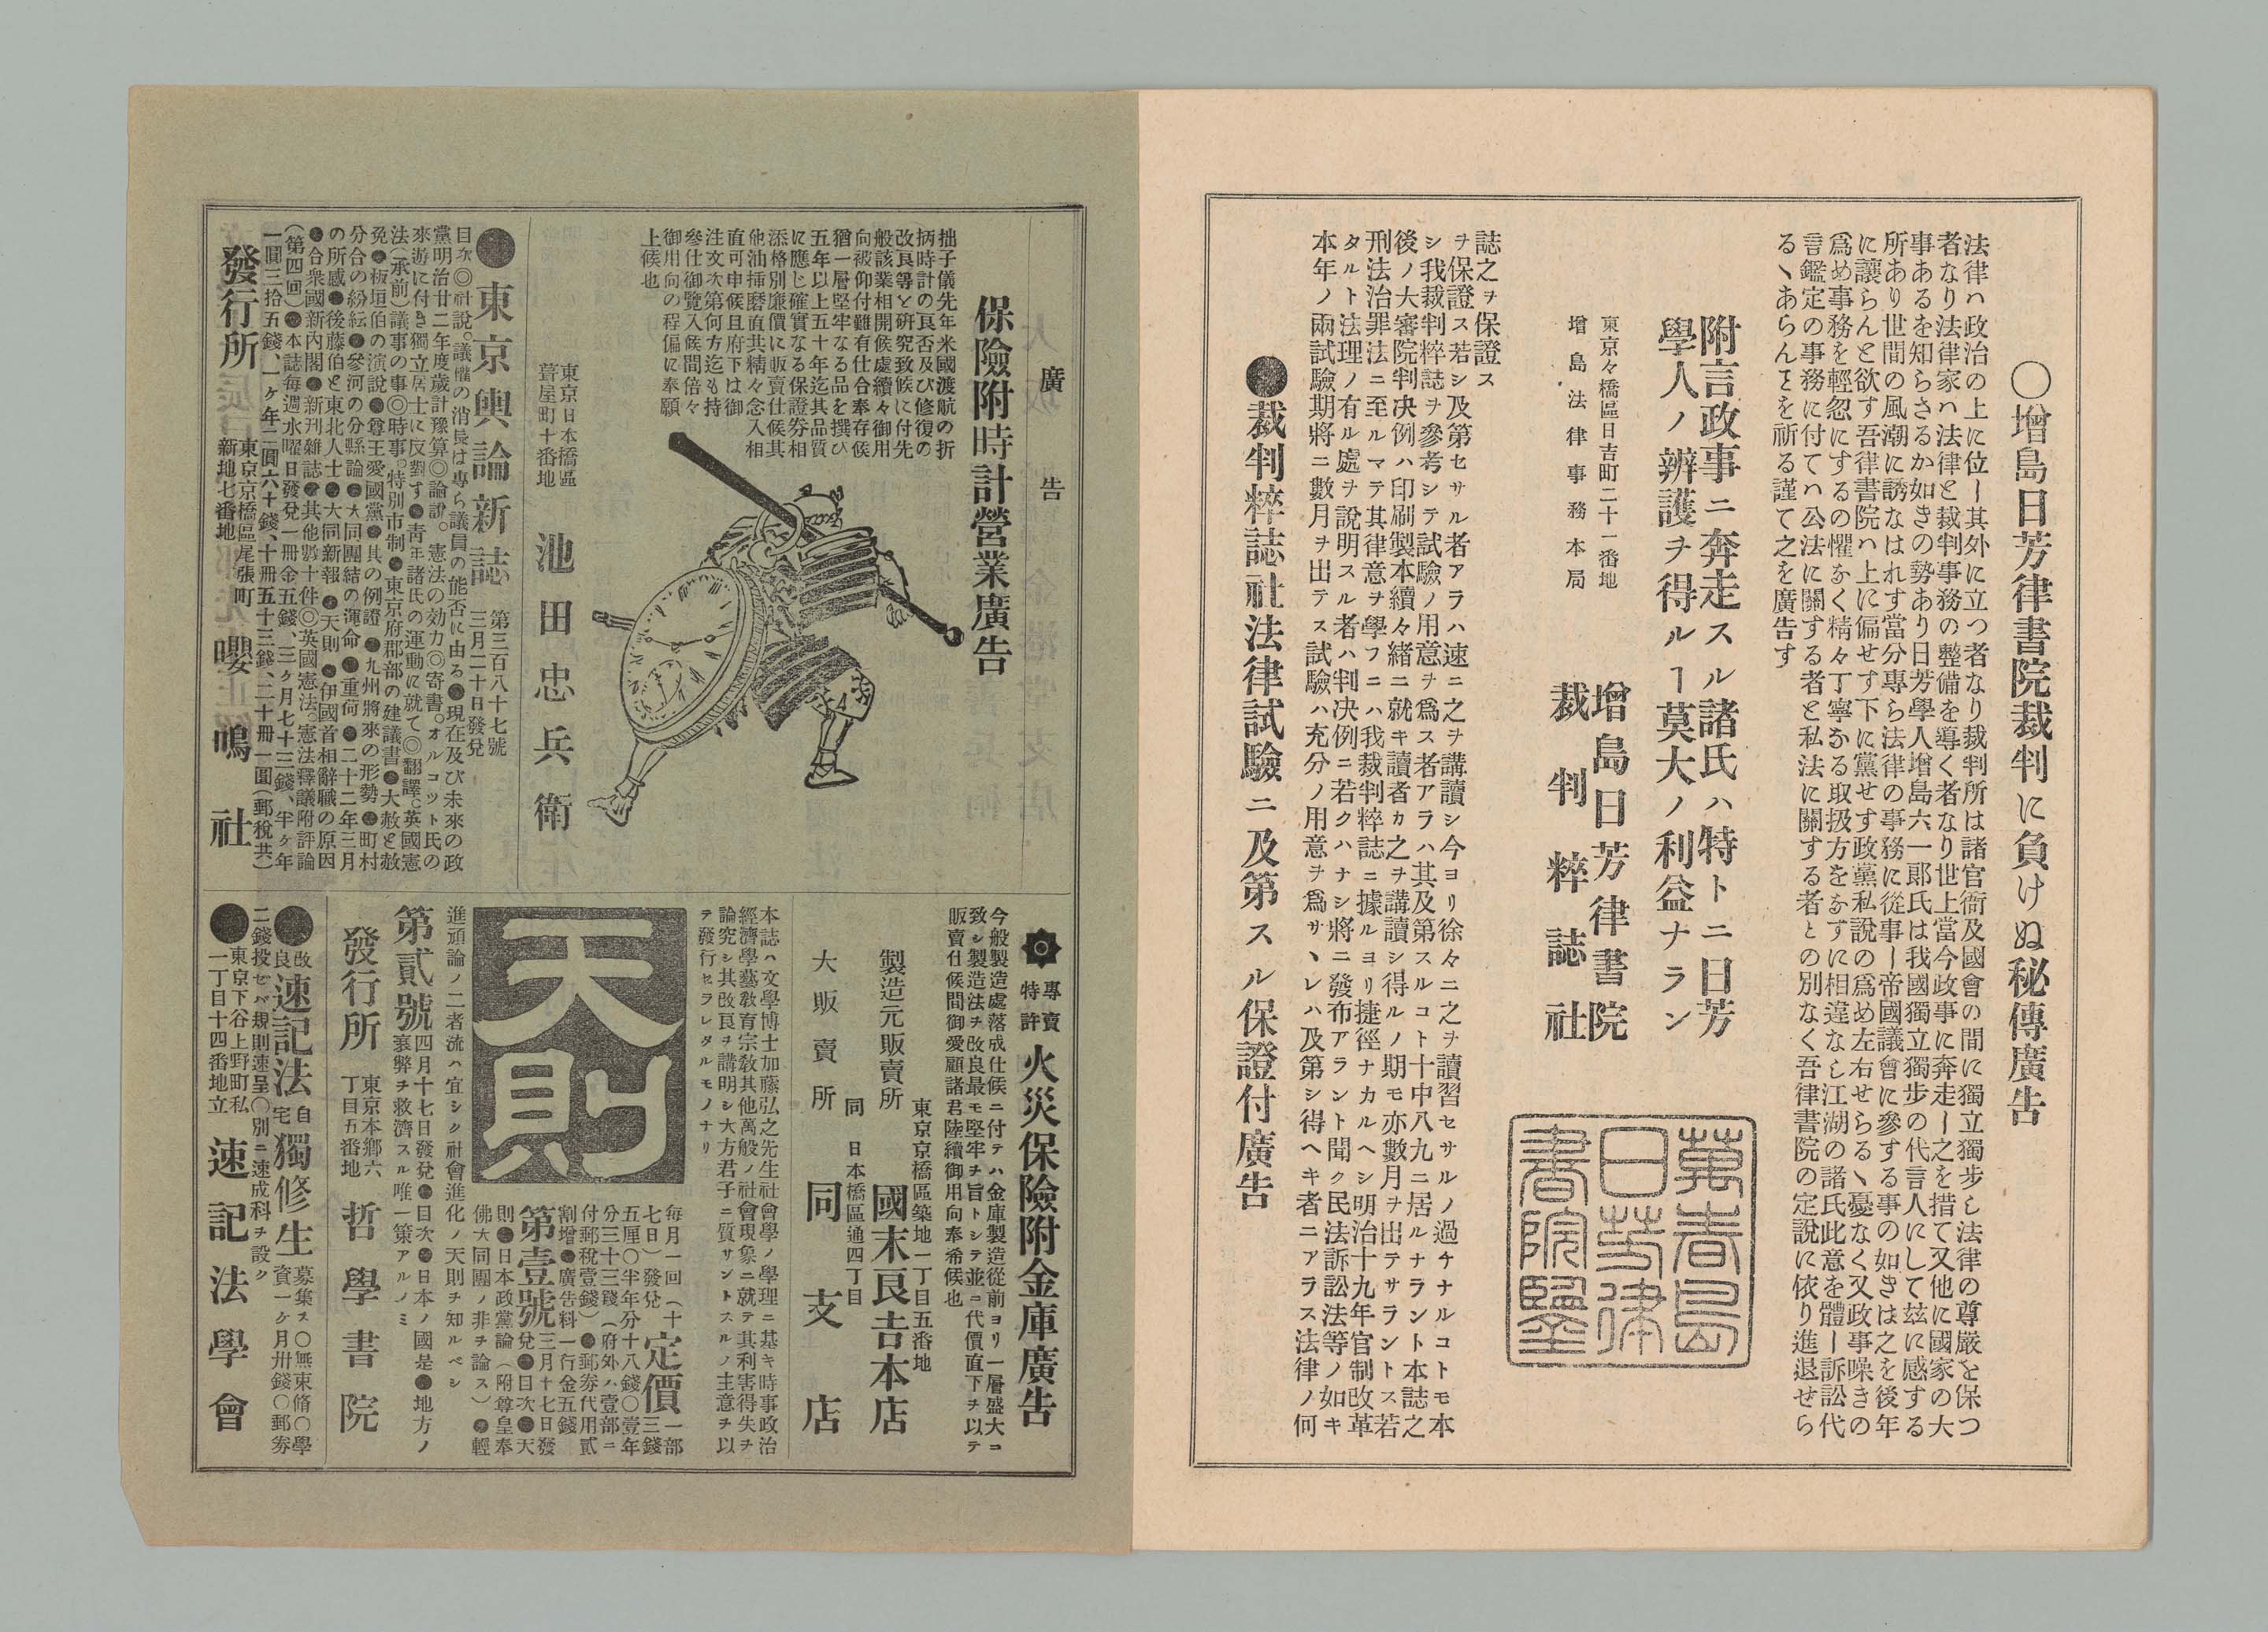 〇增島日芳律書院裁判に負けぬ秘傳廣告
法律ハ政治の上に位し其外に立つ者なり裁判所は諸官衙及國會の間に獨立獨步し法律の尊嚴を保つ
者なり法律家ハ法律と裁判事務の整備を導く者なり世上當今政事に奔走し之を措て又他に國家の大
事あるを知らさるか如きの勢あり日芳學人增島六一郎氏は我國獨立獨步の代言人にして玆に感する
所あり世間の風潮に誘なはれす當分專ら法律の事務に從事し帝國議會に參する事の如きは之を後年
に讓らんと欲す吾律書院ハ上に偏せす下に黨せす政黨私說の爲め左右せらるヽ憂なく又政事噪きの
爲め事務を輕忽にするの懼なく精々丁寧なる取扱方をなすに相違なし江湖の諸氏此意を體し訴訟代
言鑑定の事務に付てハ公法に關する者と私法に關する者との別なく吾律書院の定說に依り進退せら
るヽあらんㄥを祈る謹て之を廣告す
附言政事ニ奔走スル諸氏ハ特トニ日芳
學人ノ辨護ヲ得ルヿ莫大ノ利益ナラン
東京々橋區日吉町二十一番地
增島法律事務本局
增島日芳律書院
裁判粹誌社
增島日芳律書院璽
誌之ヲ保證ス
ヲ保證ス若シ及第セサル者アラハ速ニ之ヲ講讀シ今ヨリ徐々ニ之ヲ讀習セサルノ過チナルコトモ本
シ我裁判粹誌ヲ參考シテ試驗ノ用意ヲ爲ス者アラハ其及第スルコト十中八九ニ居ルナラント本誌之
後ノ大審院判決例ハ印刷製本續々緒ニ就キ讀者カ之ヲ講讀シ得ルノ期モ亦數月ヲ出テサラントス若
刑法治罪法ニ至ルマテ其律意ヲ學フニハ我裁判粹誌ニ據ルヨリ捷徑ナカルヘシ明治十九年官制改革
タルト法理ノ有ル處ヲ說明スル者ハ判決例ニ若クハナシ將ニ發布アラント聞ク民法訴訟法等ノ如キ
本年ノ兩試驗期將ニ數月ヲ出テス試驗ハ充分ノ用意ヲ爲サヽレハ及第シ得ヘキ者ニアラス法律ノ何
●裁判粹誌社法律試驗ニ及第スル保證付廣告
廣告
保險附時計營業廣告
拙子儀先年米國渡航の折
柄時計の良否及び修復の
改良等を硏究致候に付先
般該業相開候處續々御用
向被仰付難有仕合奉存候
猶一層堅牢なる品を撰び
五年以上五十年迄其品質
に應じ確實なる保證劵相
添格別廉價に販賣仕候其
他油揷磨直共精々念入相
直可申候且府下は御
注文次第何方迄も持
參仕御覽入候間倍々
御用向の程偏に奉願
上候也
東京日本橋區
葺屋町十番地
池田忠兵衛
●東京輿論新誌
第三百八十七號
三月二十日發兌
目次◎社說。議懽の消長は專ら議員の能否に由る●現在及び未來の政
黨明治廿二年度歲計豫算◎論說。憲法の効力◎寄書。オルコット氏の
來遊に付き獨立居士に反對す●靑年諸氏の運動に就て◎翻譯。英國憲
法(承前)議事の事◎時事。特別市制●東京府郡部の建議書●大赦と赦
免●板垣伯の演說●尊王愛國黨●其の例證●九州將來の形勢●町村
分合の紛紜●參河の分縣論●大同團結の運命●重荷●二十二年三月
の所感●後藤伯と東北人士●大同新報●天則●伊國首相辭職の原因
●合衆國新內閣●新刊雜誌●其他數十件◎英國憲法。憲法釋議附評論
(第四回)●本誌每週水曜日發兌一冊金五錢、三ヶ月七十三錢、半ヶ年
一圓三拾五錢、一ヶ年二圓六十錢、十冊五十三錢、二十冊一圓(郵稅共)
發行所
東京京橋區尾張町
新地七番地
嚶鳴社
專賣
特許
火災保險附金庫廣告
今般製造處落成仕候ニ付テハ金庫製造從前ヨリ一層盛大ニ
致シ製造法ヲ改良最モ堅牢ヲ旨トシテ並ニ代價直下ヲ以テ
販賣仕候間御愛顧諸君陸續御用向奉希候也
東京京橋區築地一丁目五番地
製造元販賣所
國末良吉本店
同日本橋區通四丁目
大販賣所
同支店
本誌ハ文學博士加藤弘之先生社會學ノ學理ニ基キ時事政治
經濟學藝敎育宗敎其他萬般ノ社會現象ニ就テ其利害得失ヲ
論究シ其改良ヲ講明シ大方君子ニ質サントスルノ主意ヲ以
テ發行セラレタルモノナリ
天則
每月一回(十
七日)發兌
定價
一部
三錢
五厘〇半年分十八錢〇壹年
分三十三錢(府外ハ壹部ニ
付郵稅壹錢)●郵劵代用貳
割增●廣告料一行金五錢
第壹號
三月十七日發
兌●目次●天
則●日本政黨論(附尊皇奉
佛大同團ノ非ヲ論ス)●輕
進頑論ノ二者流ハ宜シク社會進化ノ天則ヲ知ルベシ
第貳號
四月十七日發兌●目次●日本ノ國是●地方ノ
衰弊ヲ救濟スル唯一策アルノミ
發行所
東京本鄕六
丁目五番地
哲學書院
●改良速記法自宅獨修生募集ス〇無束脩〇學
資一ヶ月卅錢〇郵劵
二錢投セバ規則速呈〇別ニ速成科ヲ設ク
●東京下谷上野町私
一丁目十四番地立
速記法學會